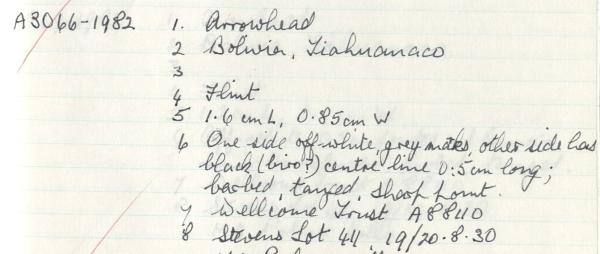 A3066-1982 1. Arrowhead
2 Bolivia, Tiahuanaco
3
4 Flint
5 1.6 cm L, 0.85cm W
6 One side off-white, grey mottles, other side has
black (biro?) centre line 0.5cm long;
barbed, tanged, sharp point.
7 Wellcome Trust A88110
8 Stevens Lot 411, 19/20.8.30